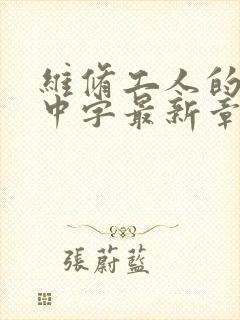 維脩工人的
中字最新章
張蔚藍